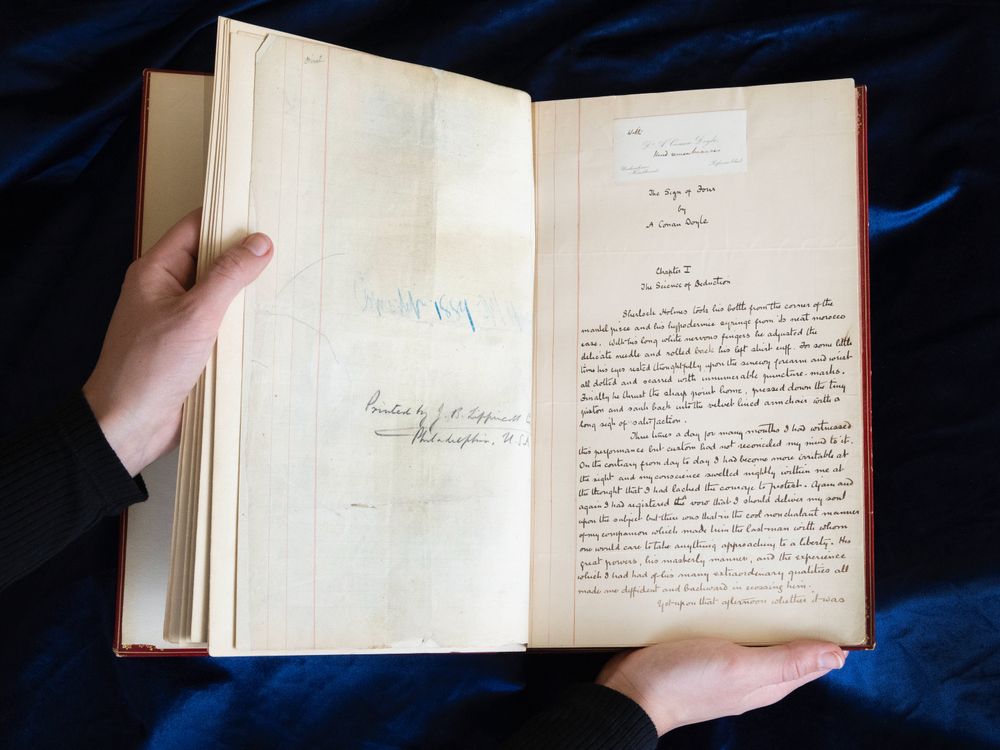 Printed by J. B. Lippincott
Philadelphia, U.S.A
With
Dr. A Conan Doyle,
Kind remembrances
The Sign of Four
by
A Conan Doyle
Chapter I
The Science of Deduction
Sherlock Holmes took his bottle from the corner of the
mantel piece and his hypodermic syringe from its neat morocco
case. With his long white nervous fingers he adjusted the
delicate needle and rolled back his left shirt cuff. For some little
time his eyes rested thoughtfully upon the sinewy forearm and wrist
all dotted and scarred with innumerable puncture-marks.
Finally he thrust the sharp point home, pressed down the tiny
piston and sank back into the velvet lined armchair with a
long sigh of satisfaction.
Three times a day for many months I had witnessed
this performance but custom had not reconciled my mind to it.
On the contrary from day to day I had become more irritable at
the sight and my conscience swelled nightly within me at
the thought that I had lacked the courage to protest. Again and
again I had registered the vow that I should deliver my soul
upon the subject but there was that in the cool nonchalant manner
of my companion which made him the last man with whom
one would care to take anything approaching to a liberty. His
great powers, his masterly manner, and the experience
which I had had of his many extraordinary qualities all
made me diffident and backward in crossing him.
Yet upon that afternoon whether it was